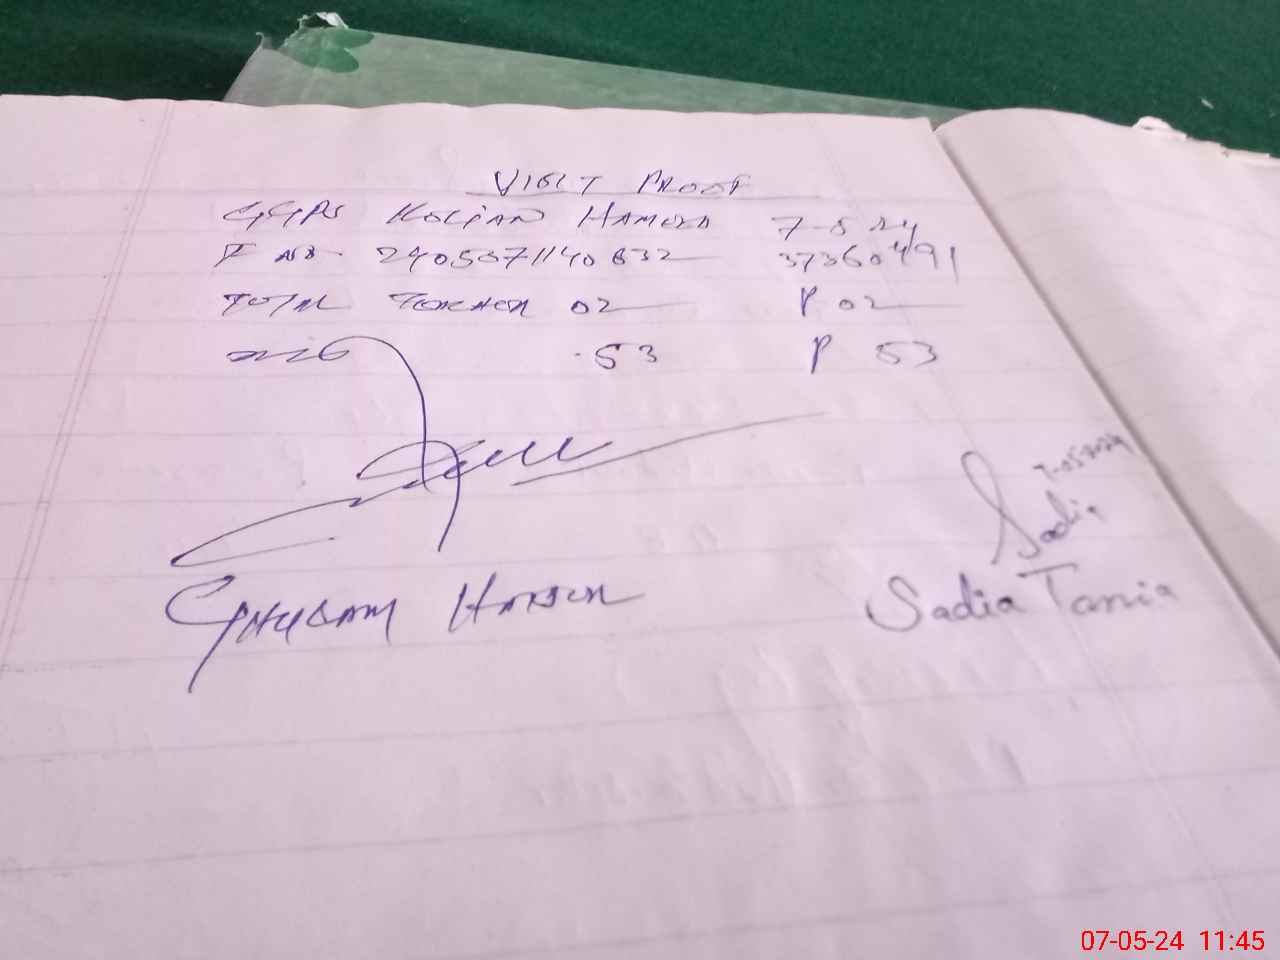 VISIT PROOF
GGPS KOLIAN HAMZA 7-5-24
37360491
TOTAL TEACHER 02 P 02
53 P 53
7-05-2024
Sadia
GHULAM Sadia Tania
07-05-24 11:45